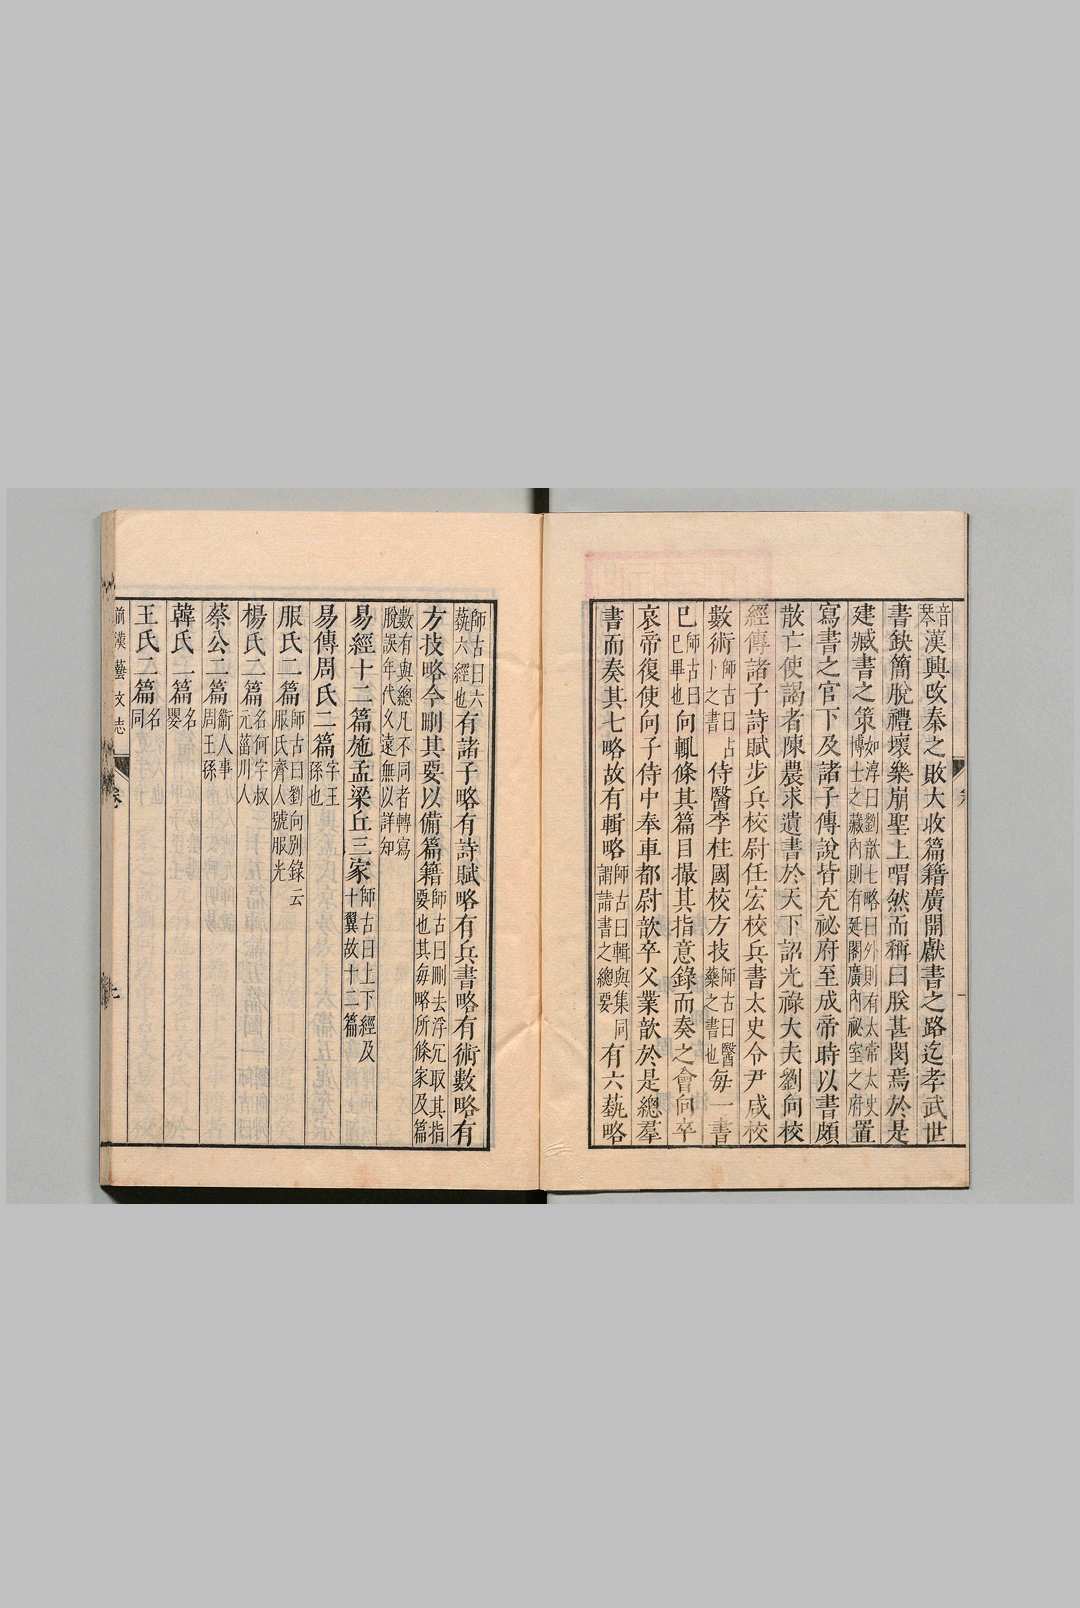 音琴漢興改秦之敗大收篇籍廣開獻書之路迄孝武世
書缺簡脫禮壞樂崩聖上喟然而稱曰朕甚閔焉於是
建臧書之策如淳曰劉歆七略曰外則有太常太史博士之藏內則有延閣廣內祕室之府置
寫書之官下及諸子傳說皆充祕府至成帝時以書頗
散亡使謁者陳農求遺書於天下詔光祿大夫劉向校
經傳諸子詩賦步兵校尉任宏校兵書太史令尹咸校
數術師古曰占卜之書侍醫李柱國校方技師古曰醫藥之書也每一書
已師古曰已畢也向輒條其篇目撮其指意錄而奏之會向卒
哀帝復使向子侍中奉車都尉歆卒父業歆於是總羣
書而奏其七略故有輯略師古曰輯與集同謂諸書之總要有六蓺略
師古曰六蓺六經也有諸子略有詩賦略有兵書略有術數略有
方技略今刪其要以備篇籍師古曰刪去浮冗取其指要也其每略所條家及篇
數有與總凡不同者轉寫脫誤年代久遠無以詳知
易經十二篇施孟梁丘三家師古曰上下經及十翼故十二篇
易傳周氏二篇字王孫也
服氏二篇師古曰劉向別錄云服氏齊人號服光
楊氏二篇名何字叔元菑川人
蔡公二篇衞人事周王孫
韓氏二篇名嬰
王氏二篇名同
前漢藝文志